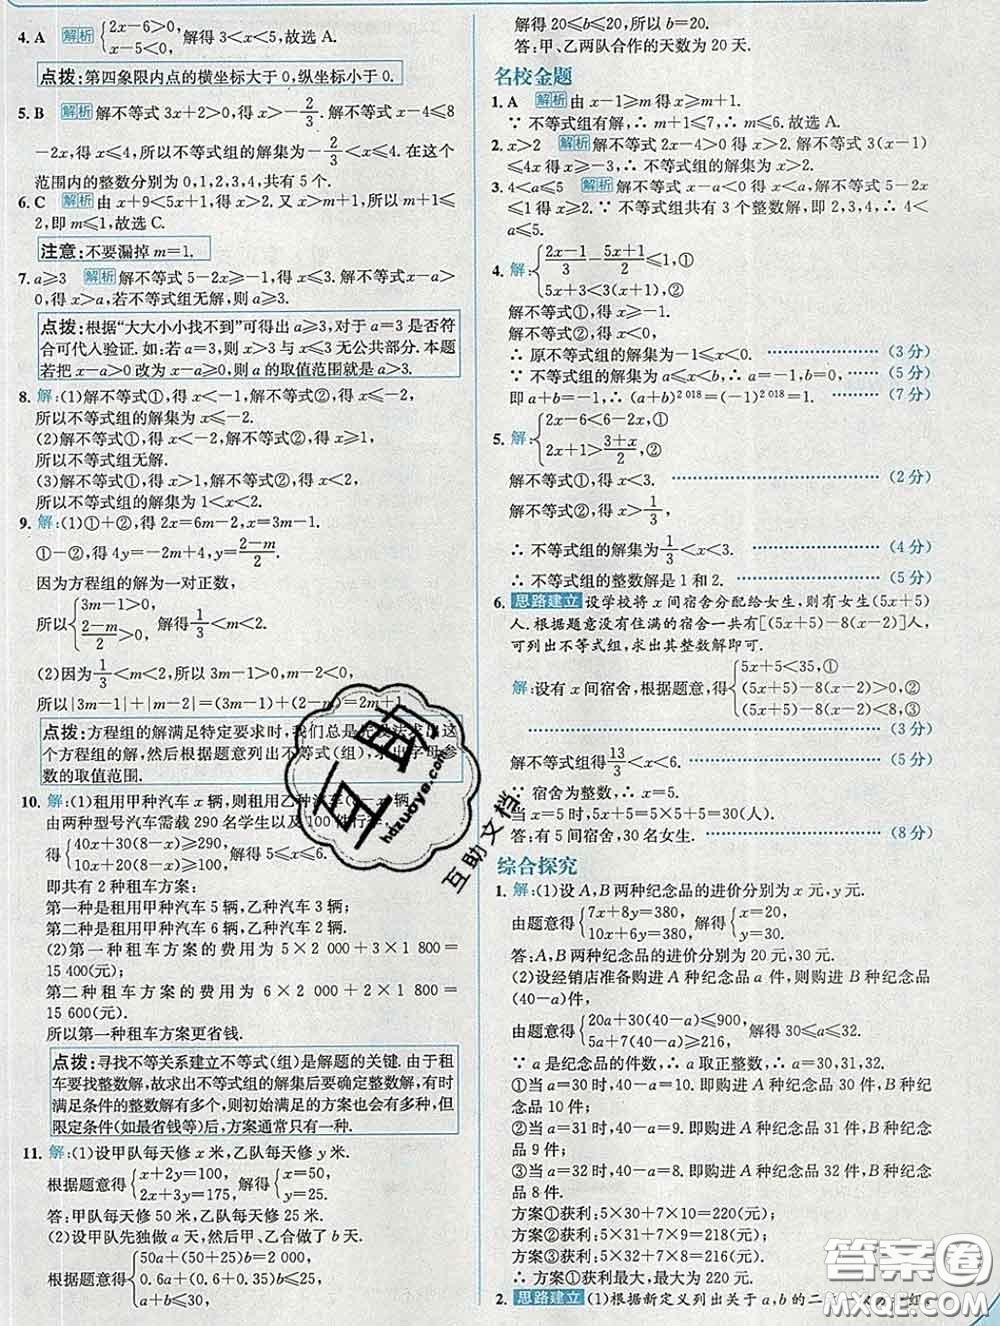 4. A 解析 {2x-6>0, x-5<0, 解得 3<x<5,故选 A.
点拨:第四象限内点的横坐标大于 0,纵坐标小于 0.
5. B 解析 解不等式 3x+2>0,得 x>-2/3.解不等式 x-4≤8
-2x,得 x≤4,所以不等式组的解集为-2/3<x≤4.在这个
范围内的整数分别为 0,1,2,3,4,共有 5 个.
6. C 解析 由 x+9<5x+1,得 x>2.又 x>m+1,所以 m+1≤
2,即 m≤1,故选 C.
注意:不要漏掉 m=1.
7. a≥3 解析 解不等式 5-2x≥-1,得 x≤3.解不等式 x-a>
0,得 x>a,若不等式组无解,则 a≥3.
点拨:根据“大大小小找不到”可得出 a≥3,对于 a=3 是否符
合可代入验证.如:若 a=3,则 x>3 与 x≤3 无公共部分.本题
若把 x-a>0 改为 x-a≥0,则 a 的取值范围就是 a>3.
8. 解:(1)解不等式①,得 x<-1,解不等式②,得 x≤-2,
所以不等式组的解集为 x≤-2.
(2)解不等式①,得 x<-2,解不等式②,得 x≥3,
所以不等式组无解.
(3)解不等式①,得 x>1,解不等式②,得 x<2,
所以不等式组的解集为 1<x<2.
9. 解:(1)①+②,得 2x=6m-2,x=3m-1.
①-②,得 4y=-2m+4,y=(2-m)/2.
因为方程组的解为一对正数,
所以{3m-1>0, (2-m)/2>0, 解得 1/3<m<2.
(2)因为 1/3<m<2,所以 3m-1>0,m-2<0,
所以|3m-1|+|m-2|=(3m-1)+(2-m)=2m+1.
点拨:方程组的解满足特定要求时,我们总是先设法求出这
个方程组的解,然后根据题意列出不等式(组),求出字母参
数的取值范围.
10. 解:(1)租用甲种汽车 x 辆,则租用乙种汽车(8-x)辆.
由两种型号汽车需载 290 名学生以及 100 件行李,
得{40x+30(8-x)≥290, 10x+20(8-x)≥100, 解得 5≤x≤6.
即共有 2 种租车方案:
第一种是租用甲种汽车 5 辆,乙种汽车 3 辆;
第二种是租用甲种汽车 6 辆,乙种汽车 2 辆.
(2)第一种租车方案的费用为 5×2 000+3×1 800=
15 400(元);
第二种租车方案的费用为 6×2 000+2×1 800=
15 600(元).
所以第一种租车方案更省钱.
点拨:寻找不等关系建立不等式(组)是解题的关键.由于租
车要找整数解,故求出不等式组的解集后要确定整数解,有时
满足条件的整数解有多个,则初始满足的方案也会有多种,但
限定条件(如最省钱等)后,方案通常只有一种.
11. 解:(1)设甲队每天修 x 米,乙队每天修 y 米.
根据题意得{x+2y=100, 2x+3y=175, 解得{x=50, y=25.
答:甲队每天修 50 米,乙队每天修 25 米.
(2)设甲队先独做 a 天,然后甲、乙合做了 b 天.
根据题意得{50a+(50+25)b=2 000, 0.6a+(0.6+0.35)b≤22, a+b≤30,
解得 20≤b≤20,所以 b=20.
答:甲、乙两队合作的天数为 20 天.
名校金题
1. A 解析 由 x-1≥m 得 x≥m+1.
∵ 不等式组有解,∴ m+1≤7,∴ m≤6.故选 A.
2. x>2 解析 解不等式 2x-4>0 得 x>2.解不等式 3(x-1)
≤4x 得 x≥-3,∴ 不等式组的解集为 x>2.
3. 4<a≤5 解析 解不等式 x-a<0 得 x<a,解不等式 5-2x
≤1 得 x≥2.∵ 不等式组共有 3 个整数解,即 2,3,4,∴ 4<
a≤5.
4. 解:{(2x-1)/3-(5x+1)/2≤1,① 5x+3<3(x+1),②
解不等式①,得 x≥-1.
解不等式②,得 x<0,
∴ 原不等式组的解集为-1≤x<0. (3 分)
∵ 不等式组的解集为 a≤x<b,∴ a=-1,b=0, (5 分)
即 a+b=-1,∴ (a+b)^2 018=(-1)^2 018=1. (7 分)
5. 解:{2x-6<6-2x,① 2x+1>(3+x)/2,②
解不等式①,得 x<3. (2 分)
解不等式②,得 x>1/3,
∴ 不等式组的解集为 1/3<x<3. (4 分)
∴ 不等式组的整数解是 1 和 2. (5 分)
6. 思路建立 设学校将 x 间宿舍分配给女生,则有女生(5x+5)
人.根据题意没有住满的宿舍一共有[(5x+5)-8(x-2)]人,
可列出不等式组,求出其整数解即可.
解:设有 x 间宿舍,根据题意,得{5x+5<35,① (5x+5)-8(x-2)>0,② (5x+5)-8(x-2)<8,③
(3 分)
解不等式组得 13/3<x<6. (5 分)
∵ 宿舍为整数,∴ x=5.
当 x=5 时,5x+5=5×5+5=30(人).
答:有 5 间宿舍,30 名女生. (8 分)
综合探究
1. 解:(1)设 A,B 两种纪念品的进价分别为 x 元,y 元.
由题意得{7x+8y=380, 10x+6y=380, 解得{x=20, y=30.
答:A,B 两种纪念品的进价分别为 20 元,30 元.
(2)设经销店准备购进 A 种纪念品 a 件,则购进 B 种纪念品
(40-a)件,
由题意得{20a+30(40-a)≤900, 5a+7(40-a)≥216, 解得 30≤a≤32.
∵ a 是纪念品的件数,∴ a 取正整数,∴ a=30,31,32.
①当 a=30 时,40-a=10.即购进 A 种纪念品 30 件,B 种纪
念品 10 件.
②当 a=31 时,40-a=9.即购进 A 种纪念品 31 件,B 种纪念
品 9 件.
③当 a=32 时,40-a=8.即购进 A 种纪念品 32 件,B 种纪念
品 8 件.
方案①获利:5×30+7×10=220(元);
方案②获利:5×31+7×9=218(元);
方案③获利:5×32+7×8=216(元).
∴ 方案①获利最大,最大为 220 元.
2. 思路建立 (1)根据新定义列出关于 a,b 的二
互助
hdzuoye.com
互助文档
答案圈
MXQE.COM